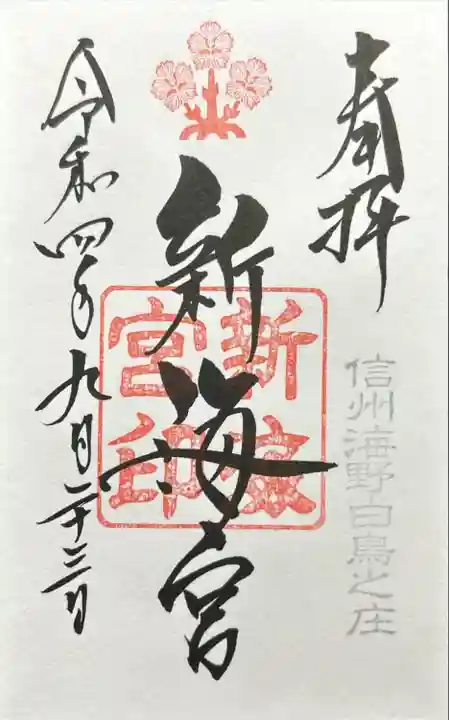 奉拝
信州海野白鳥之庄
新海宮
新海
宮印
令和四年九月二十三日